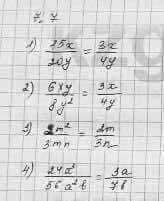 7.7
1) 15x/20y = 3x/4y
2) 6xy/8y² = 3x/4y
3) 2m²/3mn = 2m/3n
4) 24a³/56a²b = 3a/7b